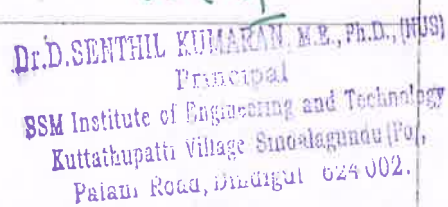 Dr.D.SENTHIL KUMARAN, M.E., Ph.D., (NUS)
Principal
SSM Institute of Engineering and Technology
Kuttathupatti Village Sindalagundu (Po),
Palani Road, Dindigul 624 002.